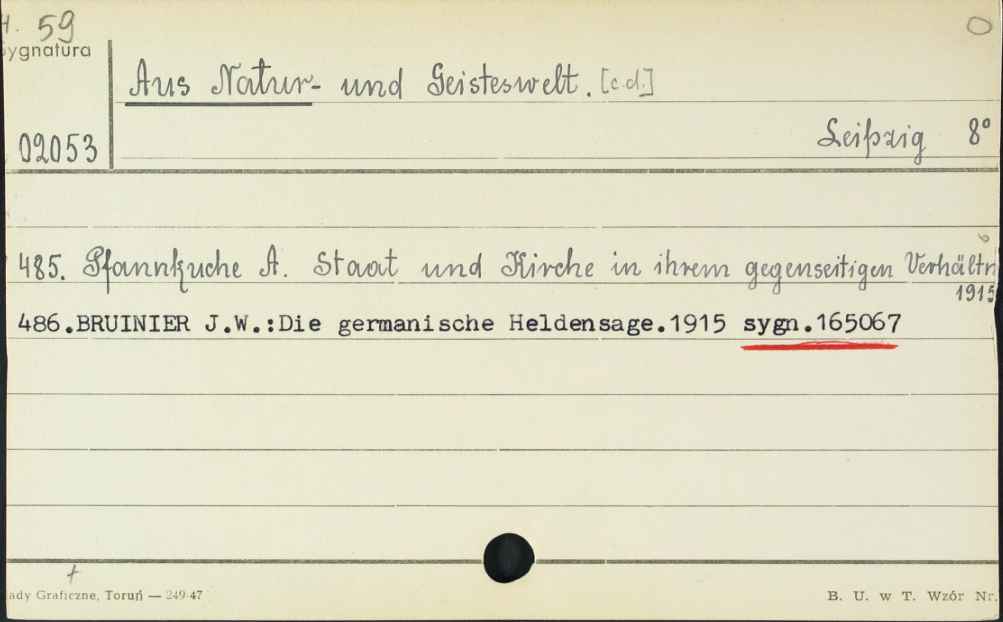 H. 59
Sygnatura
Aus Natur- und Geisteswelt. [c.d.]
02053
Leipzig 8°
485. Pfannkuche A. Staat und Kirche in ihrem gegenseitigen Verhältn
1915
486.BRUINIER J.W.:Die germanische Heldensage.1915 sygn.165067
ady Graficzne, Toruń — 249-47
B. U. w T. Wzór Nr.